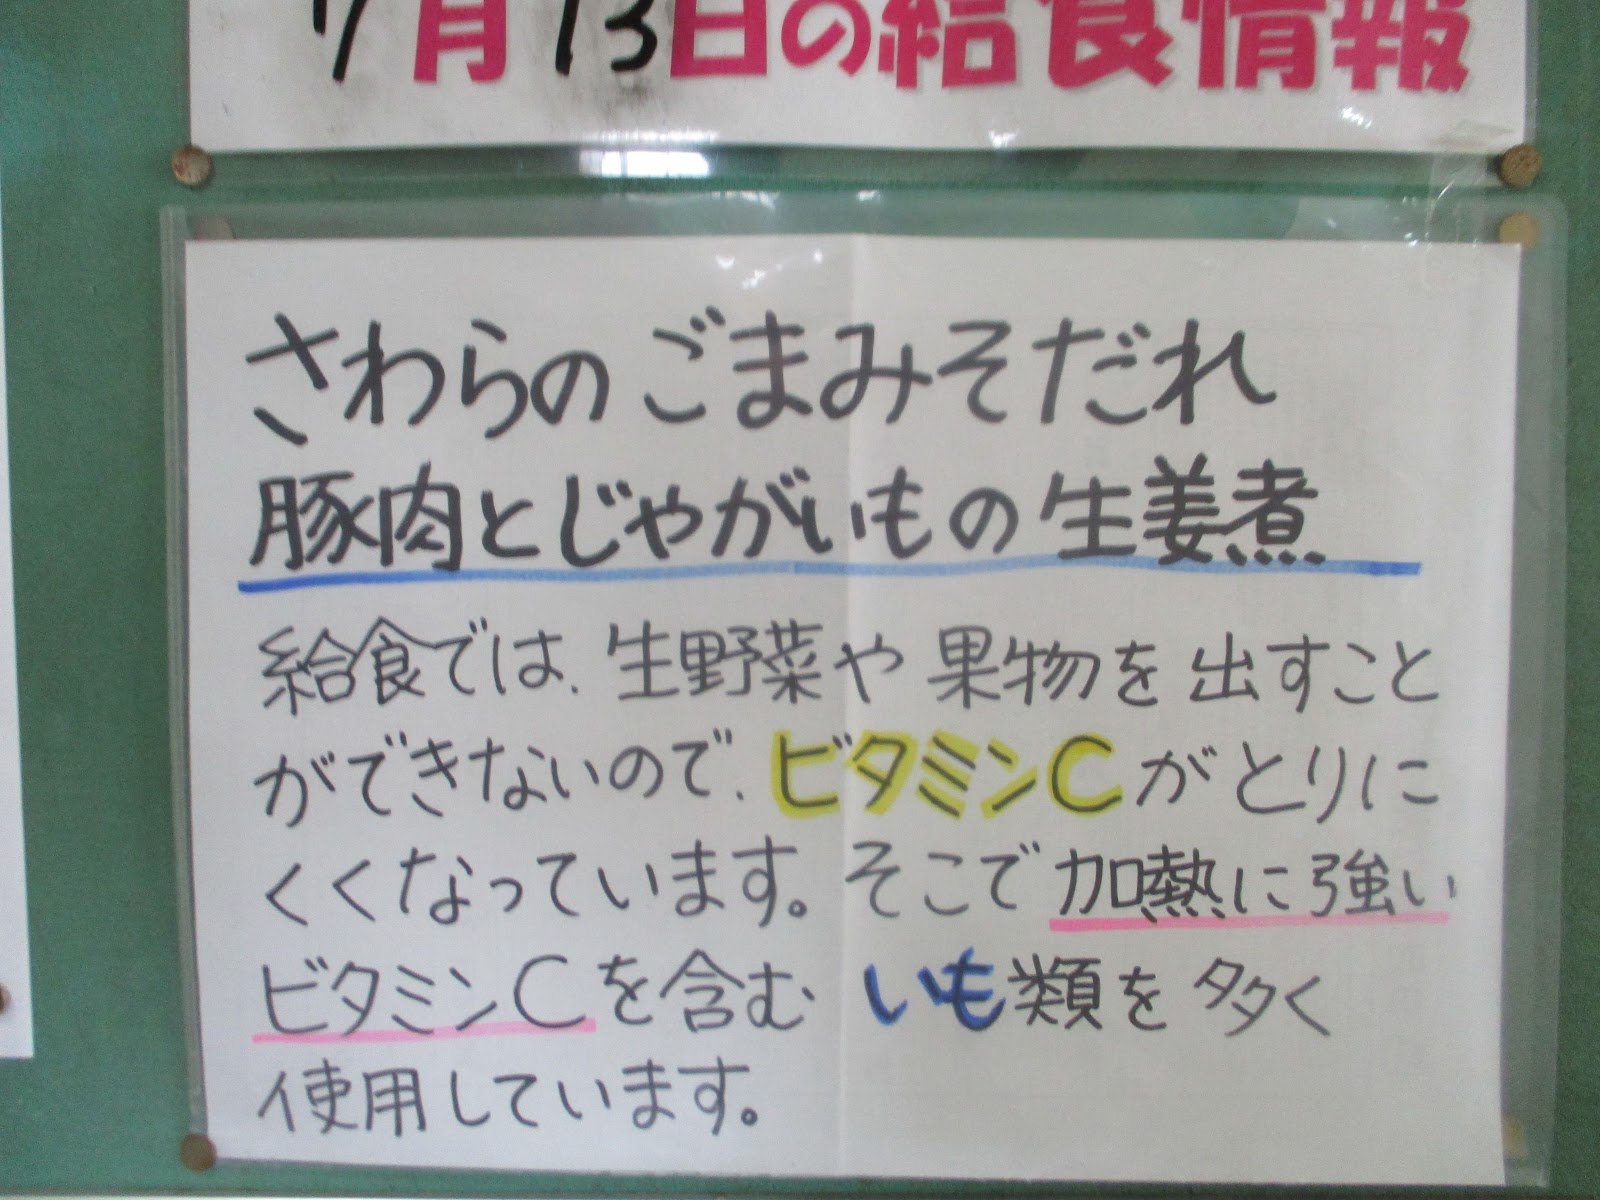 7月13日の給食情報
さわらのごまみそだれ
豚肉とじゃがいもの生姜煮
給食では、生野菜や果物を出すこと
ができないので、ビタミンCがとりに
くくなっています。そこで加熱に強い
ビタミンCを含むいも類を多く
使用しています。